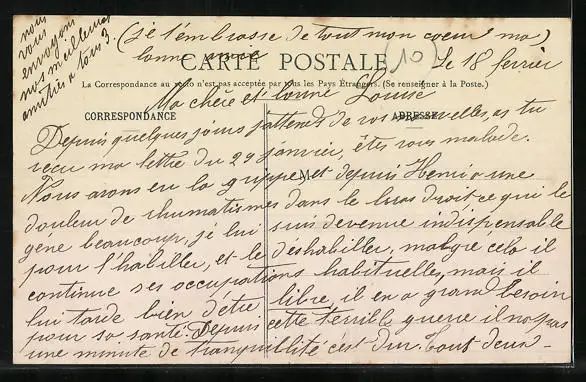 (je t'embrasse de tout mon cœur ma
bonne amie
nous
vous
envoyons
nos meilleures
amitiés a tous 3.
CARTE POSTALE
(10)
Le 18 fevrier
La Correspondance au recto n'est pas acceptée par tous les Pays Étrangers. (Se renseigner à la Poste.)
Ma chère et bonne Louise
CORRESPONDANCE
ADRESSE
Depuis quelques jours j'attends de vos nouvelles, as tu
recu ma lettre du 29 janvier, êtes vous malade.
Nous avons eu la grippe et depuis Henri a une
M
douleur de rhumatismes dans le bras droit ce qui le
gêne beaucoup, je lui suis devenue indispensable
pour l'habiller, et le déshabiller, malgre cela il
continue ses occupations habituelles, mais il
lui tarde bien d'être libre, il en a grand besoin
pour sa santé. Depuis cette terrible guerre il n'a pas
une minute de tranquillité c'est dur. Tout deux-